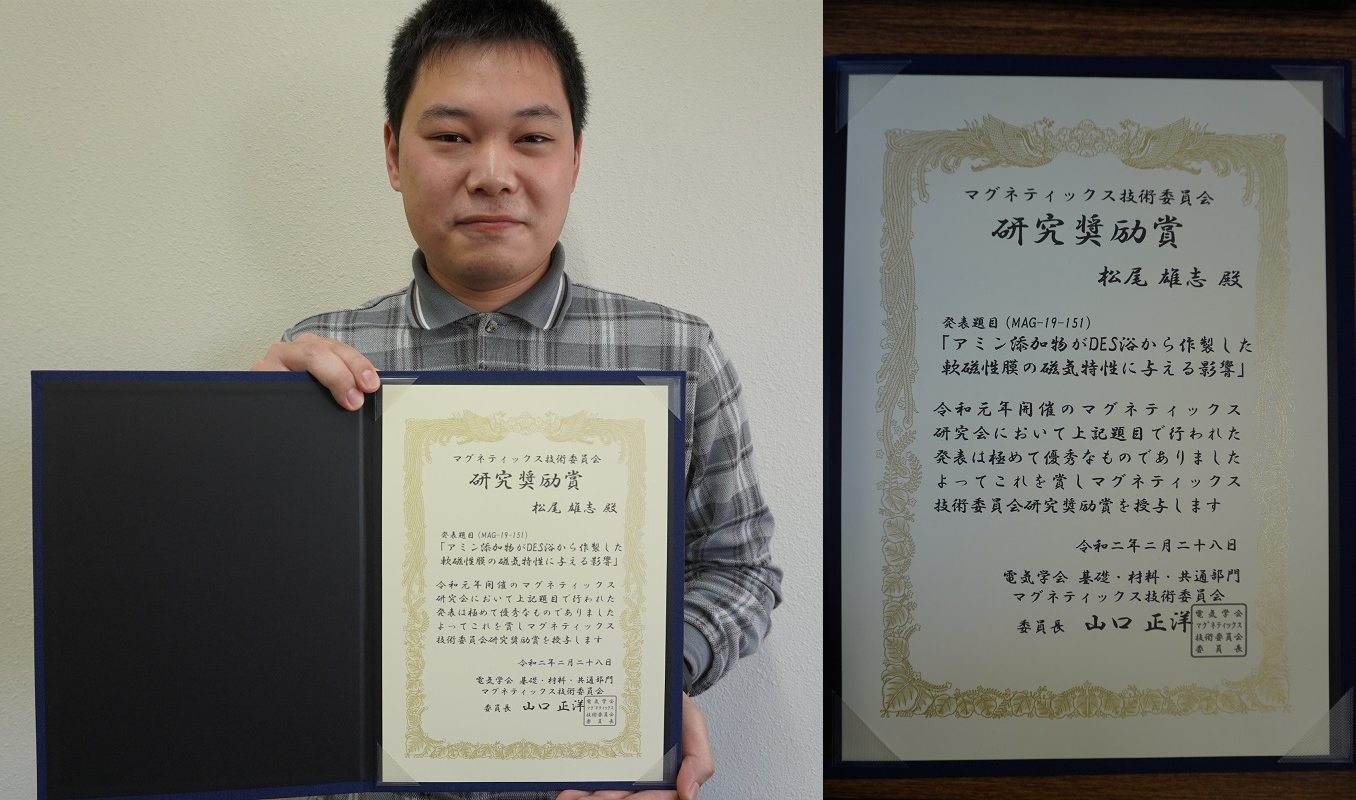 マグネティックス技術委員会
研究奨励賞
松尾 雄志 殿
発表題目 (MAG-19-151)
「アミン添加物がDES浴から作製した
軟磁性膜の磁気特性に与える影響」
令和元年開催のマグネティックス
研究会において上記題目で行われた
発表は極めて優秀なものでありました
よってこれを賞しマグネティックス
技術委員会研究奨励賞を授与します
令和二年二月二十八日
電気学会 基礎・材料・共通部門
マグネティックス技術委員会
委員長 山口 正洋
電気学会
マグネティックス
技術委員会
委員長
マグネティックス技術委員会
研究奨励賞
松尾 雄志 殿
発表題目 (MAG-19-151)
「アミン添加物がDES浴から作製した
軟磁性膜の磁気特性に与える影響」
令和元年開催のマグネティックス
研究会において上記題目で行われた
発表は極めて優秀なものでありました
よってこれを賞しマグネティックス
技術委員会研究奨励賞を授与します
令和二年二月二十八日
電気学会 基礎・材料・共通部門
マグネティックス技術委員会
委員長 山口 正洋
電気学会
マグネティックス
技術委員会
委員長